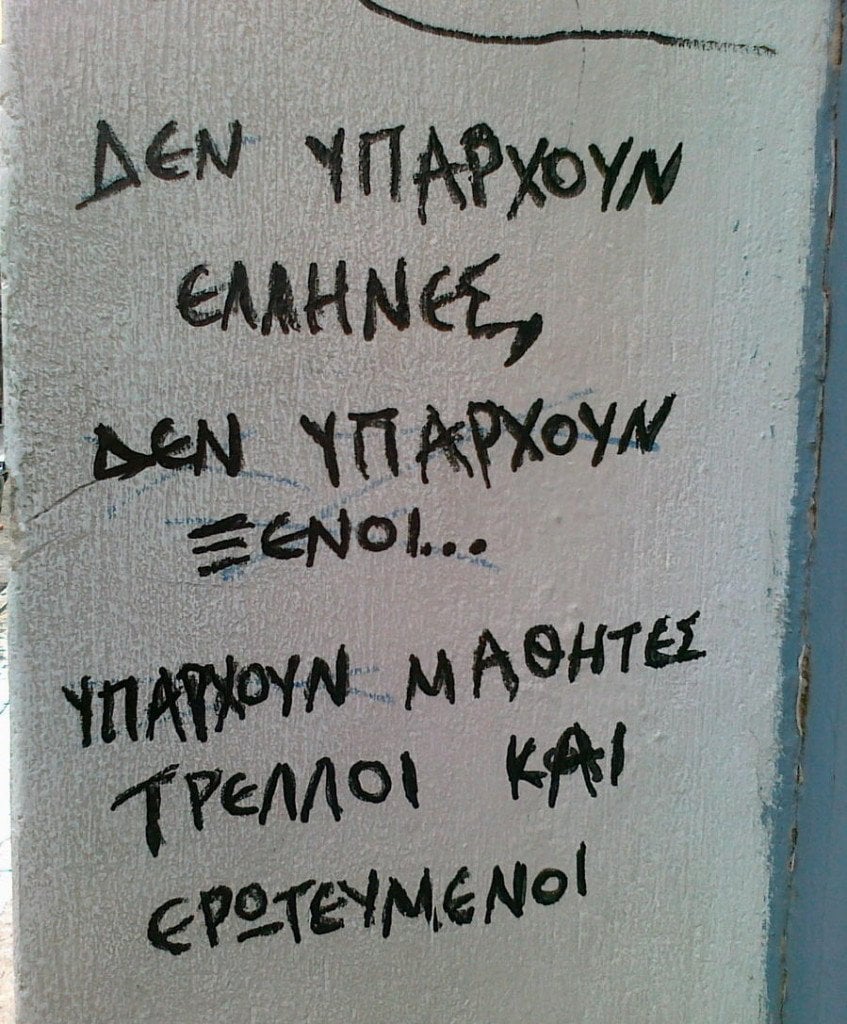 ΔΕΝ ΥΠΑΡΧΟΥΝ
ΕΛΛΗΝΕΣ,
ΔΕΝ ΥΠΑΡΧΟΥΝ
ΞΕΝΟΙ...
ΥΠΑΡΧΟΥΝ ΜΑΘΗΤΕΣ
ΤΡΕΛΛΟΙ ΚΑΙ
ΕΡΩΤΕΥΜΕΝΟΙ